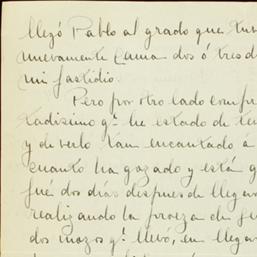 llegó Pablo al grado que tuv
nuevamente cama dos ó tres d
mi fastidio.
Pero por otro lado compre
tadisimo q! he estado de ten
y de verlo tan encantado á
cuanto ha gozado y están q
fué dos días despues de llegar
realizando la proeza de
dos mozos q! llevó, en llega